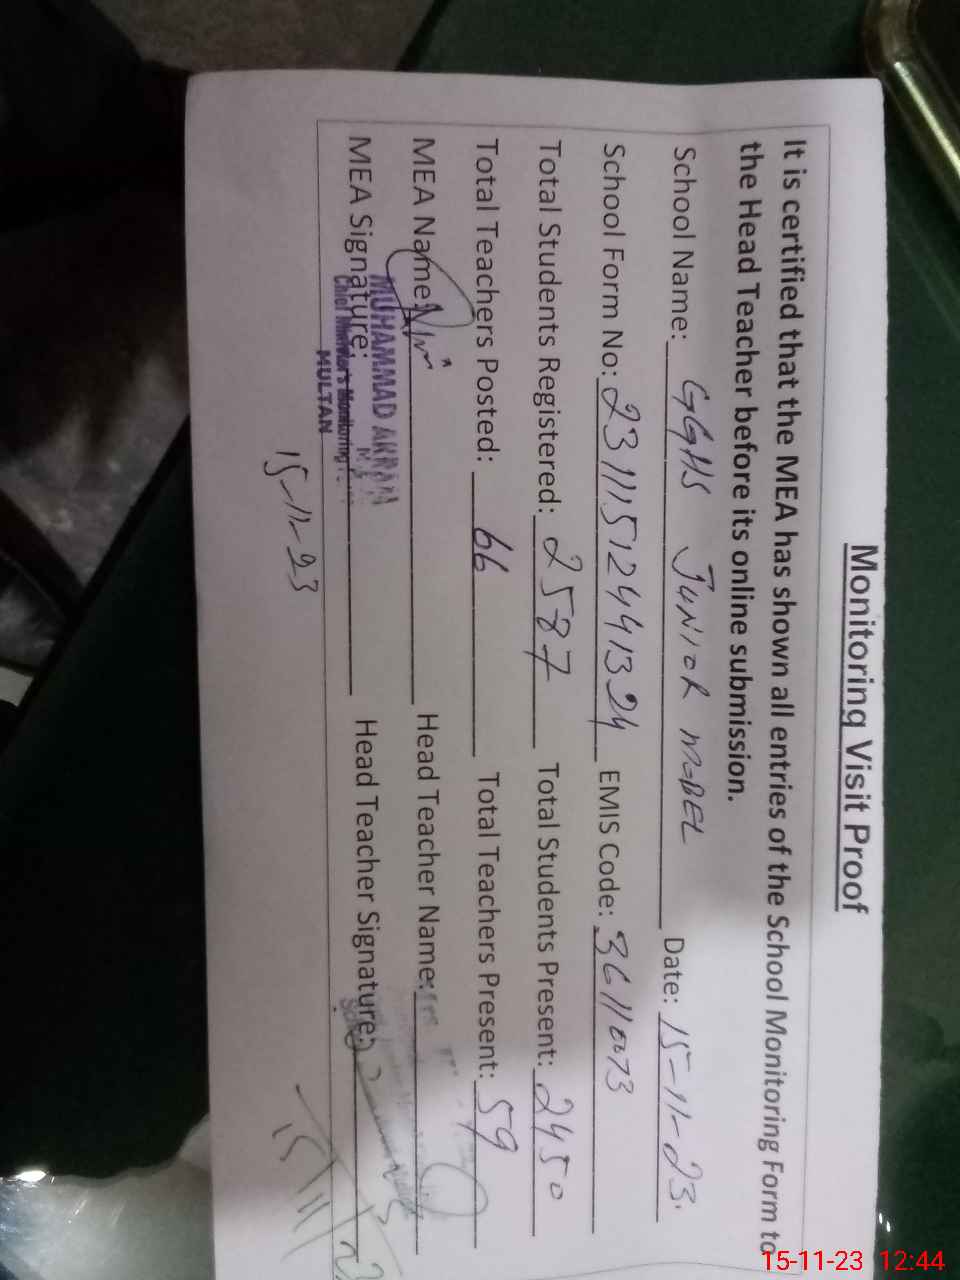 Monitoring Visit Proof
It is certified that the MEA has shown all entries of the School Monitoring Form to
the Head Teacher before its online submission.
School Name: GGHS JUNIOR MODEL Date: 15-11-23.
School Form No: 23111512441324 EMIS Code: 36110073
Total Students Registered: 2587 Total Students Present: 2450
Total Teachers Posted: 66 Total Teachers Present: 59
MEA Name: Head Teacher Name:
MUHAMMAD AKRAM
MEA Signature: Head Teacher Signature:
Chief Monitoring
MULTAN
15-11-23
15-11-23 12:44